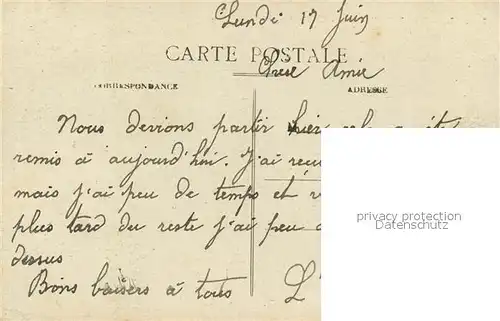 Lundi 17 Juin
CARTE POSTALE
Chère Amie
CORRESPONDANCE
ADRESSE
Nous devions partir hier cela a été
remis à aujourd'hui. J'ai
mais j'ai peu de temps et
plus tard du reste j'ai peu
dessus
Bons baisers à tous
L'
privacy protection
Datenschutz